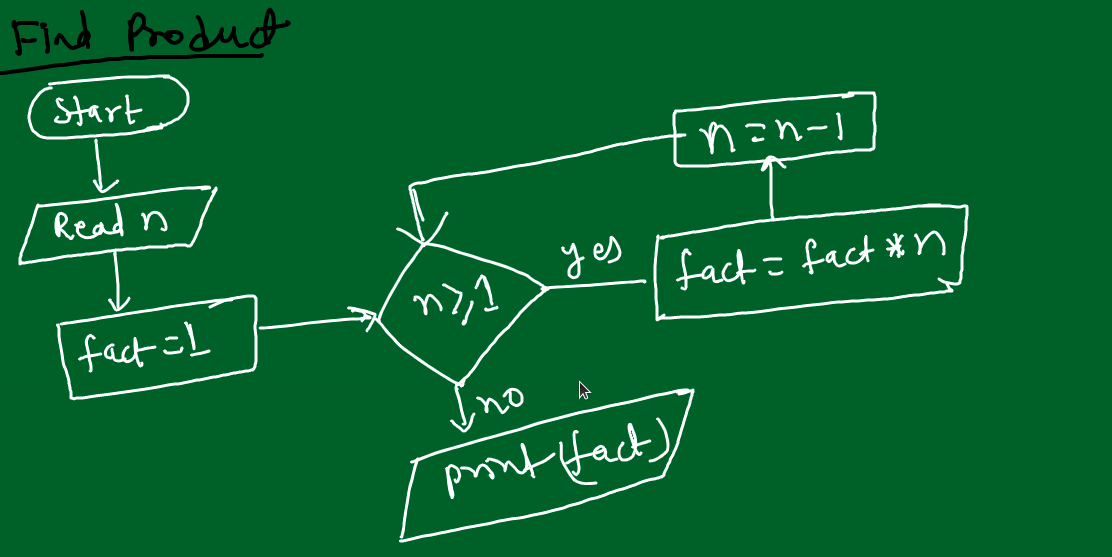 Find Product
Start
Read n
fact=1
n>,1
yes
fact = fact * n
n = n-1
no
print(fact)